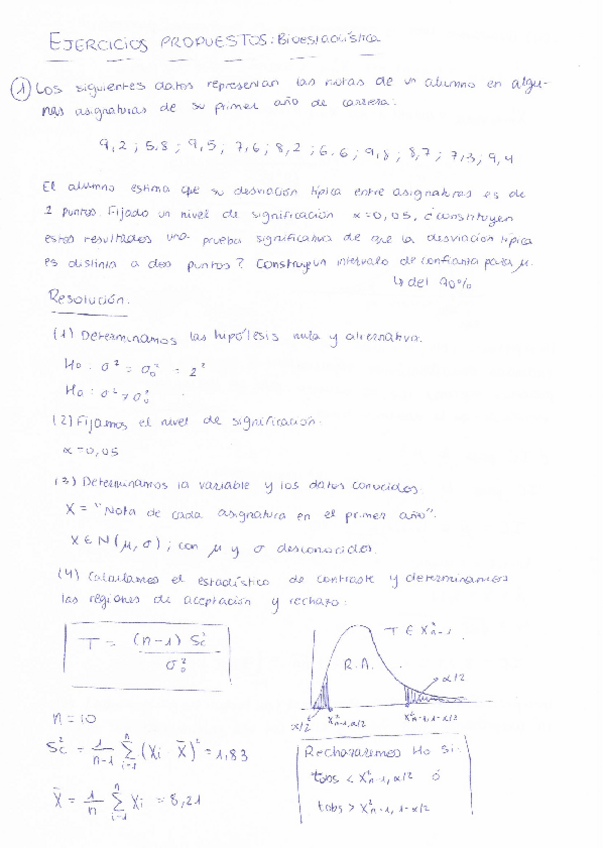 EJERCICIOS PROPUESTOS: Bioestadística
① Los siguientes datos representan las notas de un alumno en algu-
nas asignaturas de su primer año de carrera:
9,2 ; 5,8 ; 9,5 ; 7,6 ; 8,2 ; 6,6 ; 9,8 ; 8,7 ; 7,3 ; 9,4
El alumno estima que su desviación típica entre asignaturas es de
2 puntos. Fijado un nivel de significación α=0,05, ¿constituyen
estos resultados una prueba significativa de que la desviación típica
es distinta a dos puntos? Construye un intervalo de confianza para μ.
↳ del 90%
Resolución:
(1) Determinamos las hipótesis nula y alternativa.
Ho: σ² = σ₀² = 2²
Ho: σ² ≠ σ₀²
(2) Fijamos el nivel de significación:
α=0,05
(3) Determinamos la variable y los datos conocidos.
X = "Nota de cada asignatura en el primer año".
X ∈ N(μ, σ) ; con μ y σ desconocidos.
(4) Calculamos el estadístico de contraste y determinamos
las regiones de aceptación y rechazo:
T = (n-1) Sc² / σ₀²
T ∈ X²n-1
R.A.
α/2
α/2
X²n-1, α/2
X²n-1, 1-α/2
n = 10
Sc² = 1/n-1 Σ(i=1, n) (Xi - X̄)² = 1,83
X̄ = 1/n Σ(i=1, n) Xi = 8,21
Rechazaremos Ho si:
tobs < X²n-1, α/2 ó
tobs > X²n-1, 1-α/2